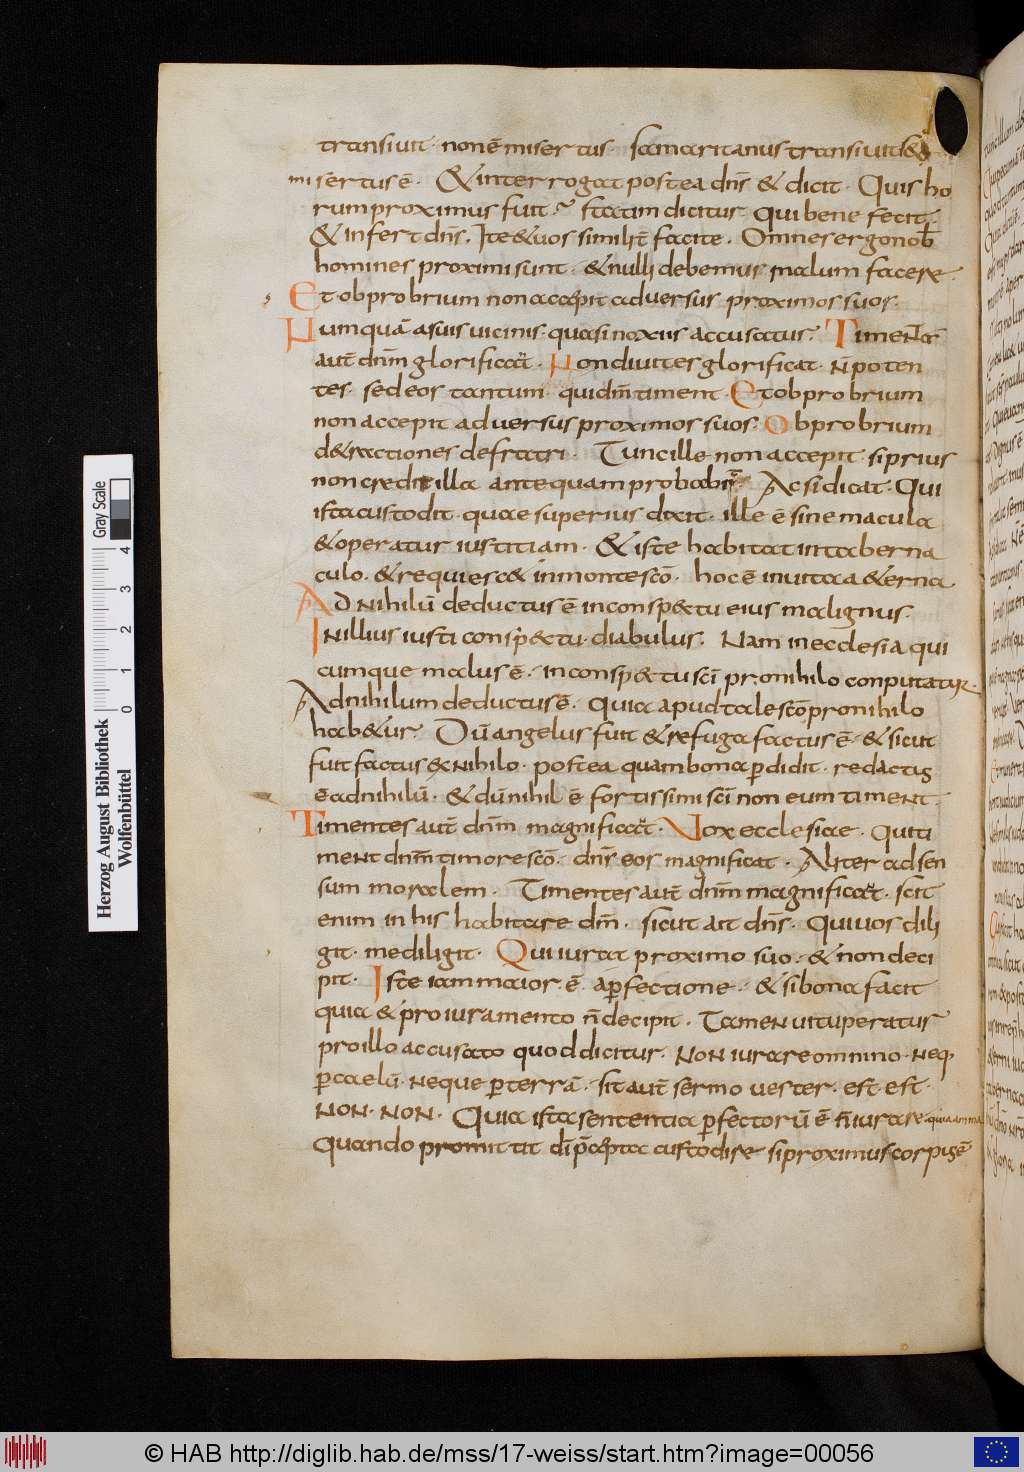 transiuit · non ē misertus · samaritanus transiuit &
misertus ē · & interrogat postea dn̄s & dicit · Quis ho
rum proximus fuit · statim dicitur qui bene fecit ·
& infert dn̄s . Ite & uos similit̄ facite . Omnes ergo nob̄
homines proximi sunt · & nulli debemus malum facere ·
Et obprobrium non accepit aduersus proximos suos ·
Numquā a suis uicinis quasi noxiis accusatur · Timentes
aut̄ dnm̄ glorificat · Non diuites glorificat · n̄ poten
tes · sed eos tantum · qui dnm̄ timent · Et obprobrium
non accepit aduersus proximos suos · Obprobrium
d&ractiones de fratri · Tunc ille non accepit · si prius
non credit illa antequam probabit̄ · Ac si dicat · Qui
ista custodit · quae superius dixit · ille ē sine macula
& operatur iustitiam · & iste habitat in taberna
culo · & requiesc& in monte scō · hoc ē in uita a&erna
Ad nihilū deductus ē in consp&tu eius malignus ·
In illius iusti consp&tu · diabulus · Nam in ecclesia qui
cumque malus ē · in consp&tu sc̄i pro nihilo conputatur ·
Ad nihilum deductus ē · Quia apud tale scō pro nihilo
hab&ur · Dū angelus fuit & refuga factus ē · & sicut
fuit factus & nihilo · postea quam bona p̄didit · redactus
ē ad nihilū · & dū nihil ē fortissimi sc̄i non eum timent ·
Timentes aut̄ dnm̄ magnificat · Vox ecclesiae · Qui ti
ment dnm̄ timore scō · dn̄s eos magnificat · Aliter ad sen
sum moralem · Timentes aut̄ dnm̄ magnificat · scit
enim in his habitare dm̄ · sicut ait dn̄s · Qui uos dili
git · me diligit · Qui iurat proximo suo · & non deci
pit · Iste iam maior ē a p̄fectione · & si bona facit
quia & pro iuramento n̄ decipit · Tamen uituperatur
pro illo accusato quod dicitur · Non iurare omnino · neq,
p̄ caelū · neque p̄ terrā · sit aut̄ sermo uester · est est ·
Non · non · Quia ista sententia p̄fectorū ē n̄ iurare
Quando promittit dī p̄cepta custodire si proximus
Herzog August Bibliothek
Wolfenbüttel
Gray Scale
0 1 2 3 4
© HAB http://diglib.hab.de/mss/17-weiss/start.htm?image=00056